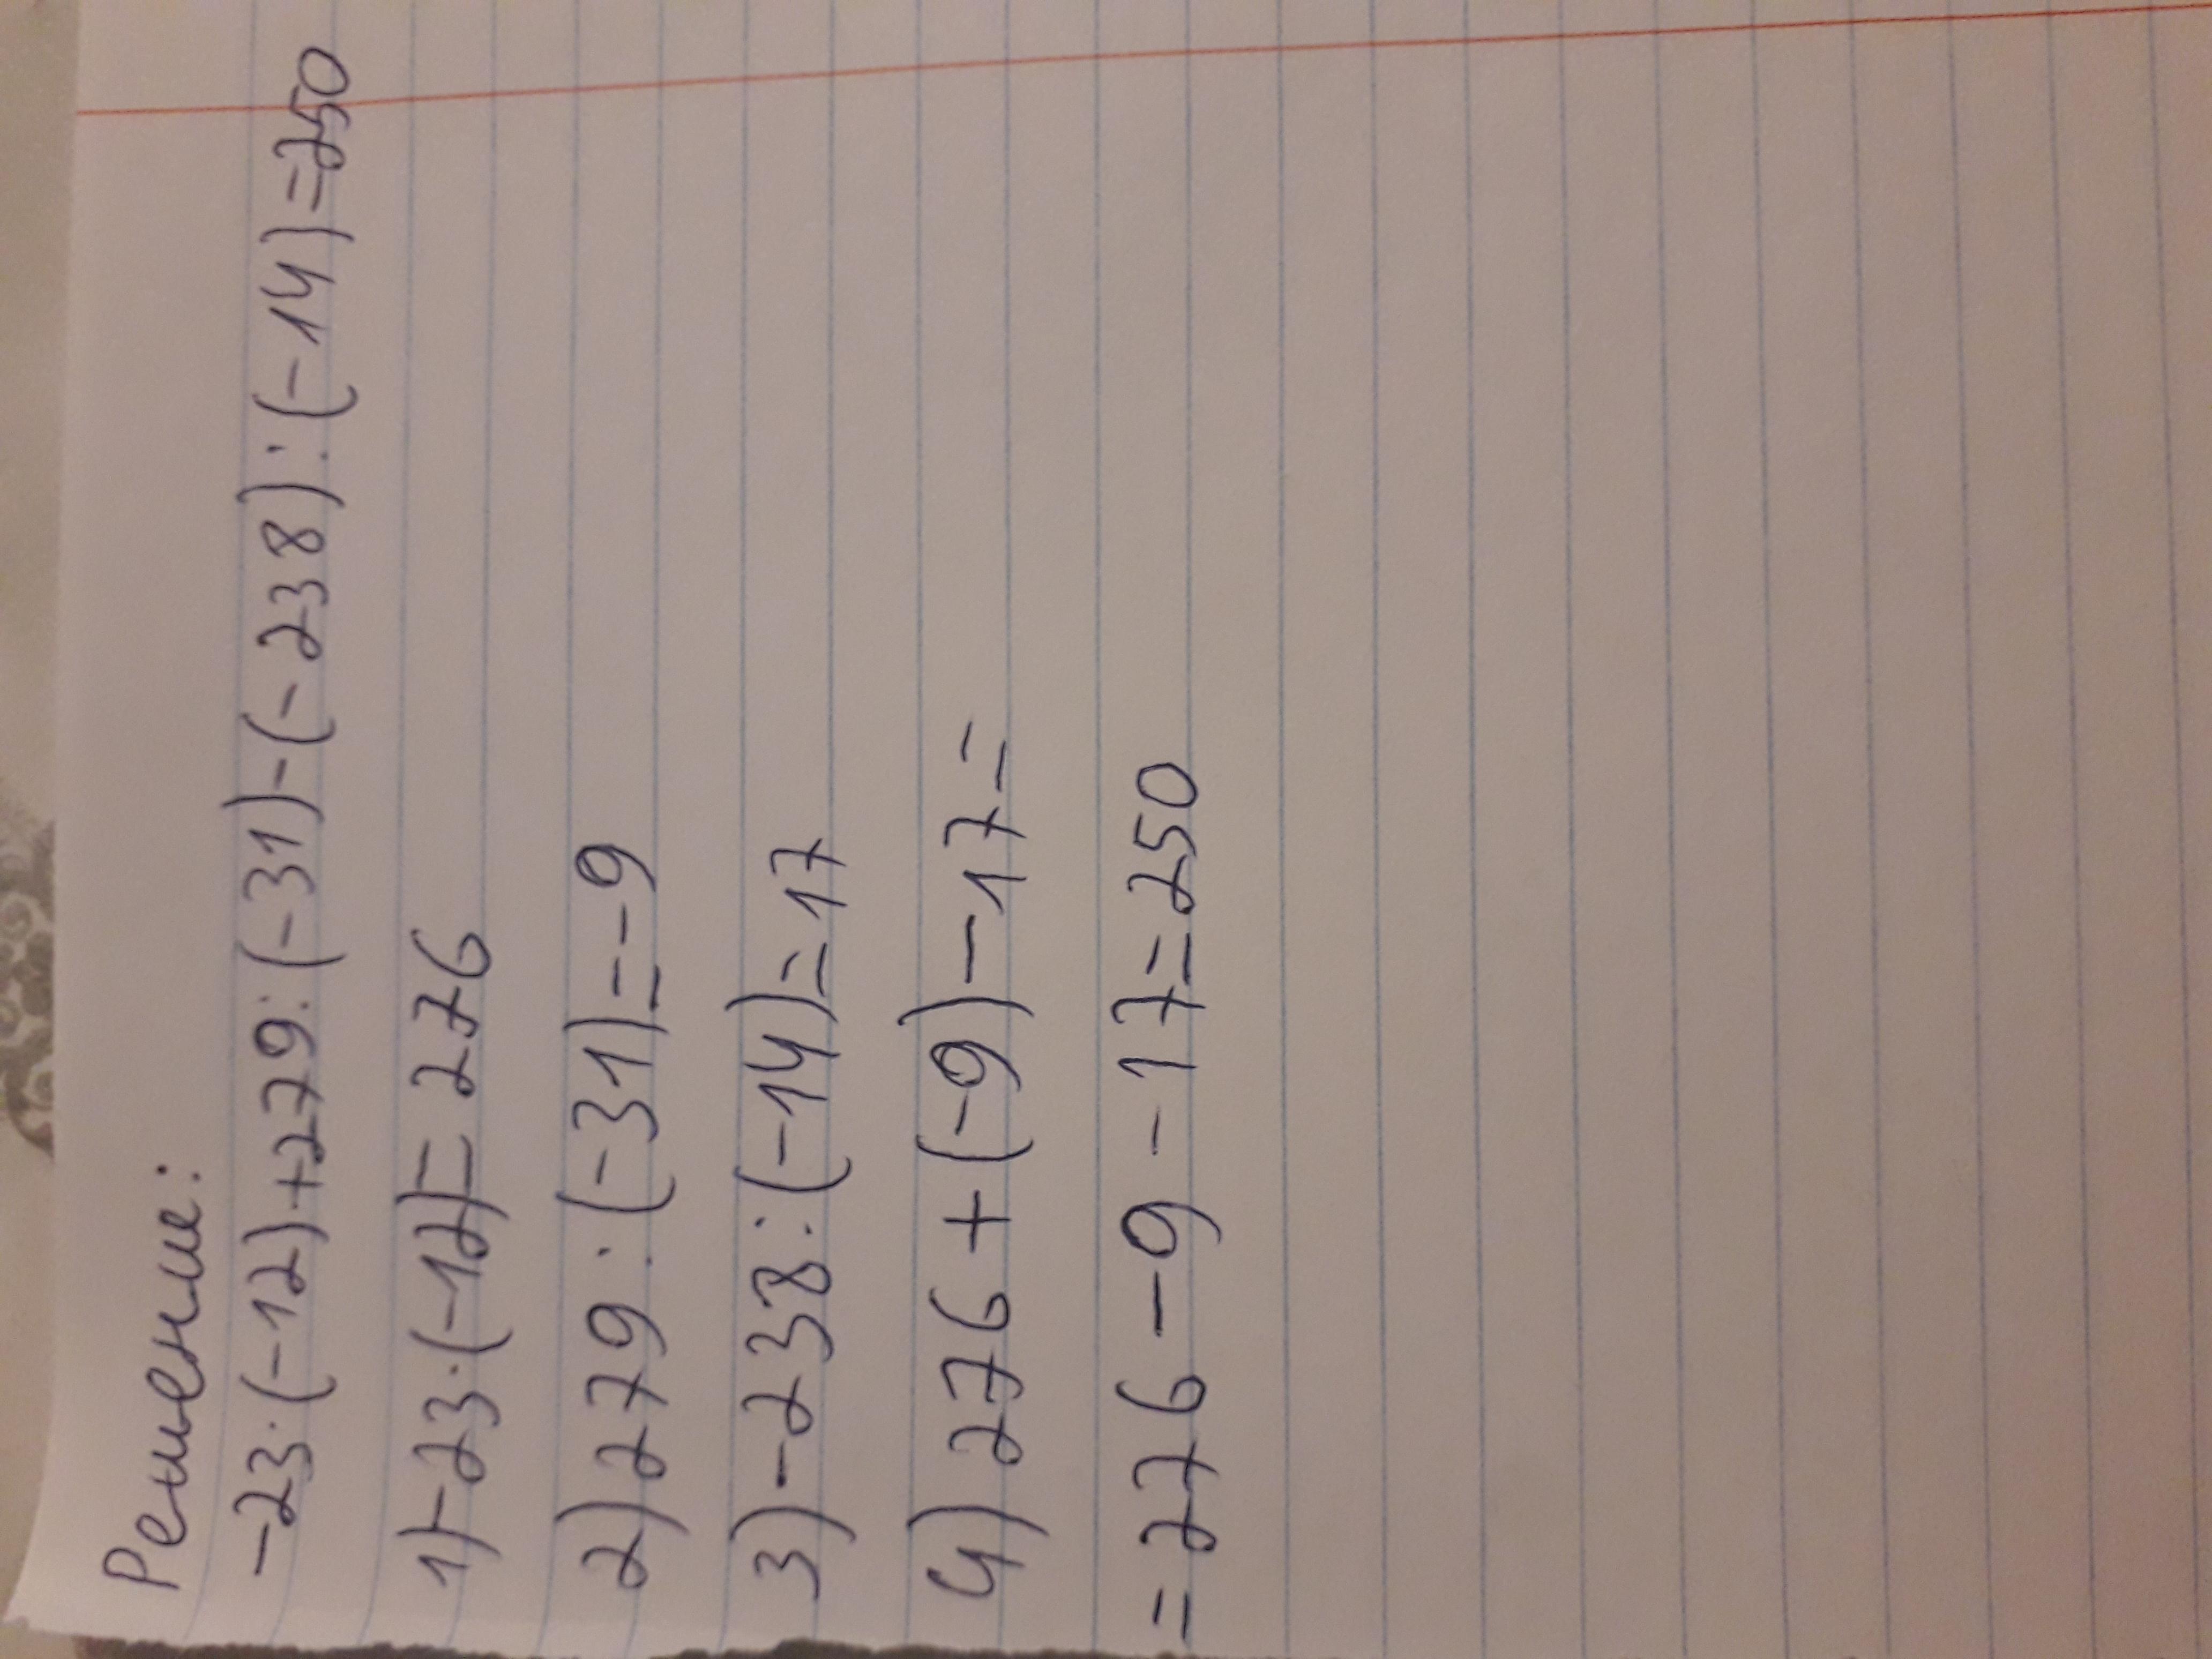 Решение:
-23·(-12)+279:(-31)-(-238):(-14)=250
1)-23·(-12)=276
2)279:(-31)=-9
3)-238:(-14)=17
4)276+(-9)-17=
=276-9-17=250